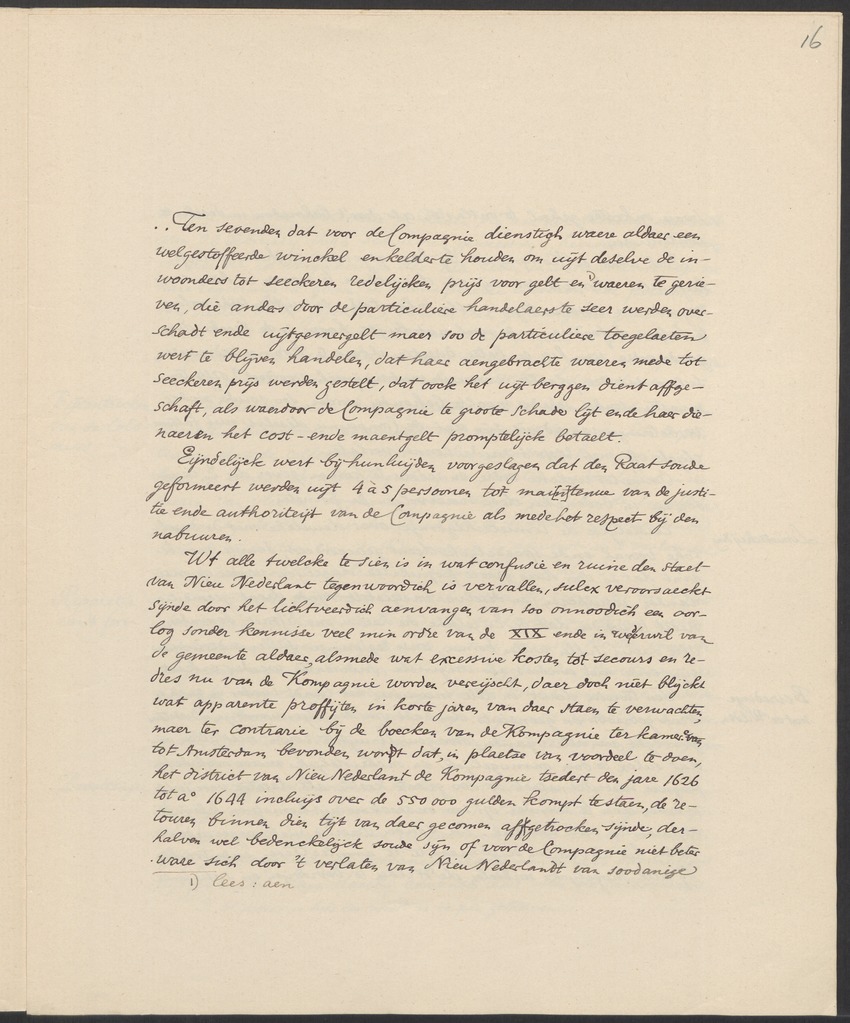 16
.. Ten sevenden dat voor de Compagnie dienstigh waere aldaer een
welgestoffeerde winckel en kelder te houden om uyt deselve de in-
woonders tot seeckeren redelijcken prijs voor gelt en 1) waeren te gerie-
ven, die anders door de particuliere handelaers te seer werden over-
schadt ende uijtgemergelt maer soo de particuliere toegelaeten
wert te blijven handelen, dat haer aengebrachte waeren mede tot
seeckeren prijs werden gestelt, dat oock het uyt berggen dient affge-
schaft, als waerdoor de Compagnie te groote schade lijt ende haer die-
naeren het cost- ende maentgelt promptelijck betaelt.
Eijndelijck wert bij hunluijden voorgeslagen dat den Raat soude
geformeert werden uijt 4 à 5 persoonen tot mai[n]tenue van de justi-
tie ende authoriteijt van de Compagnie als mede het respect bij den
nabuuren.
Wt alle twelcke te sien is in wat confusie en ruine den staet
van Nieu Nederlant tegenwoordich is vervallen, sulcx veroorsaeckt
sijnde door het lichtveerdich aenvangen van soo onnoodich een oor-
log sonder kennisse veel min ordre van de XIX ende in weerwil van
de gemeente aldaer, alsmede wat excessive kosten tot secours en re-
dres nu van de Kompagnie worden vereijscht, daer doch niet blijckt
wat apparente proffijten in korte jaren van daer staen te verwachten,
maer ter contrarie bij de boecken van de Kompagnie ter kamer van
tot Amsterdam bevonden wordt dat, in plaetse van voordeel te doen,
het district van Nieu Nederlant de Kompagnie tsedert den jare 1626
tot aº 1644 incluijs over de 550 000 gulden kompt te staen, de re-
touren binnen dien tijt van daer gecomen affgetrocken sijnde, der-
halven wel bedenckelijck soude sijn of voor de Compagnie niet beter
ware sich door 't verlaten van Nieu Nederlandt van soodanige
1) lees: aen